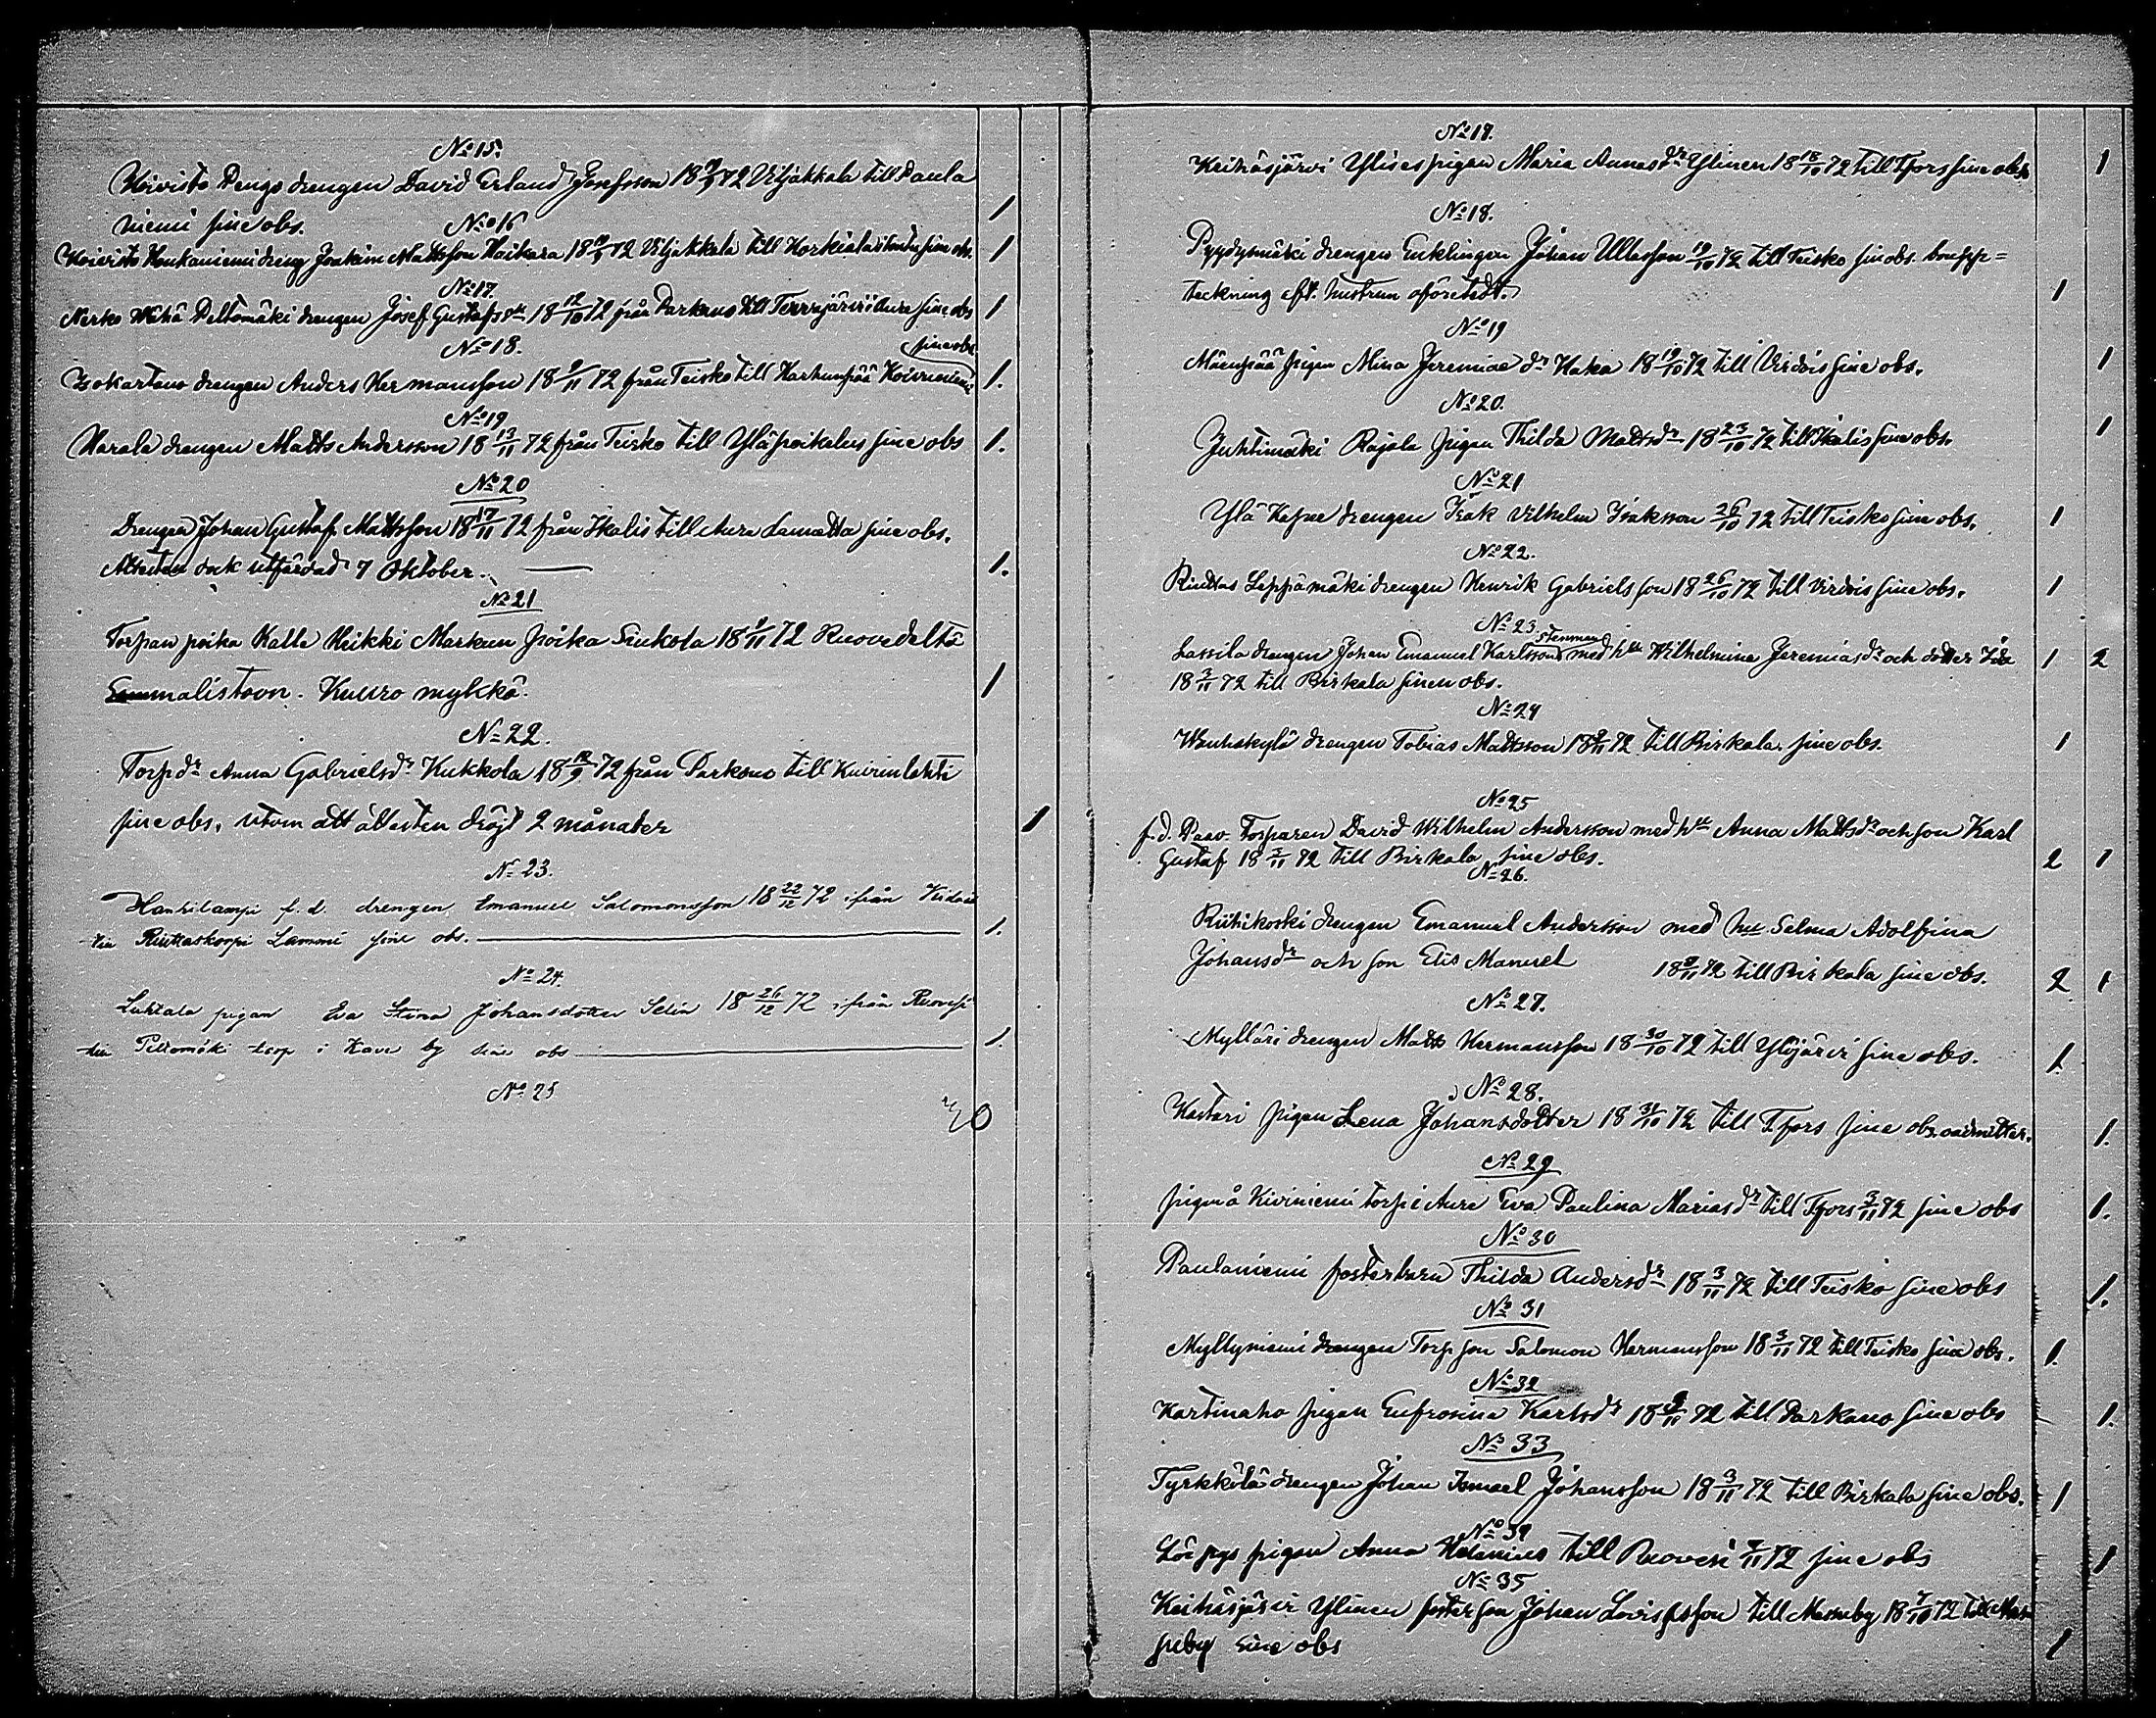 No 15.
Koivisto Pengo drengen David Erland Josefsson 18 9/9 72 Viljakkala till Paula
niemi sine obs.
1
No 16
Koivisto Honkaniemi dreng Joakim Mattsson Haikara 18 72 Viljakkala till sine obs.
1
No 17.
Nerko Wähä Peltomäki drengen Josef Gustafss. 18 12/10 72 från Parkano till i Aure sine obs
1
No 18.
sine obs.
Isokartano drengen Anders Hermansson 18 9/11 72 från Teisko till Karhunpää Koivuniemi
1.
No 19
Harala drengen Matts Andersson 18 13/11 72 från Teisko till Yläpoikelus sine obs
1.
No 20
Drengen Johan Gustaf Mattsson 18 17/11 72 från Ikalis till Aure sine obs.
Attesten dock utfärdad 7 Oktober.
1.
No 21
Torpan poika Kalle Heikki Markun poika Siukola 18 1/11 72 Ruovedeltä
Kuuro mykkä.
1
No 22.
Torpdr Anna Gabrielsdr Kukkola 18 12/9 72 från Parkano till Kuivinlahti
sine obs. utom att attesten dröjt 2 månader
1
No 23.
Hankilampi f.d. drengen Emanuel Salomonsson 18 22/12 72 ifrån
till Riuttaskorpi Lammi sine obs.
1.
No 24.
Luhtala pigan Eva Stina Johansdotter Selin 18 26/12 72 ifrån Ruovesi
till Peltomäki torp i by sine obs
1.
No 25
20
No 17.
Keihäsjärvi Ylises pigan Maria Annasdr Ylinen 18 18/10 72 till Tfors sine obs.
1
No 18.
drengen Enklingen Johan Ullasson 19/10 72 till Teisko sin obs.
teckning eft. hustrun oföretedt.
1
No 19
Mäenpää pigan Mina Jeremiae dr Haka 18 19/10 72 till Virdois sine obs.
1
No 20.
Juhtimäki Rajala pigan Thilda Mattsdr 18 23/10 72 till Ikalis sine obs.
1
No 21
Ylä drengen Isak Vilhelm Isaksson 26/10 72 till Teisko sine obs.
1
No 22.
Riuttas Leppämäki drengen Henrik Gabrielsson 18 26/10 72 till Virdois sine obs.
1
No 23.
Stenman
Lassila drengen Johan Emanuel Karlsson med hu Wilhelmina Jeremiasdr och dotter Ida
1 2
18 2/11 72 till Birkala sine obs.
No 24
Wanhakylä drengen Tobias Mattsson 18 2/11 72 till Birkala sine obs.
1
No 25
f.d. Paav. Torparen David Wilhelm Andersson med hu Anna Mattsdr och son Karl
Gustaf 18 2/11 72 till Birkala sine obs.
2 1
No 26.
Riihikoski drengen Emanuel Andersson med hu Selma Adolfina
Johansdr och son Elis Manuel 18 2/11 72 till Birkala sine obs.
2 1
No 27.
Mylläri drengen Matts Hermansson 18 30/10 72 till Ylöjärvi sine obs.
1.
No 28.
Kastari pigan Lena Johansdotter 18 31/10 72 till Tfors sine obs.
1.
No 29
pigan å Kiviniemi torp i Aure Eva Paulina Mariasdr till Tfors 3/11 72 sine obs
1.
No 30
Paulaniemi fosterbarn Thilda Andersdr 18 3/11 72 till Teisko sine obs
1.
No 31
Myllyniemi drengen Torp son Salomon Hermansson 18 3/11 72 till Teisko sine obs.
1.
No 32
Kartinaho pigan Eufrosina Karlsdr 18 2/11 72 till Parkano sine obs
1.
No 33
Tyrkkölä drengen Johan Ismael Johansson 18 3/11 72 till Birkala sine obs.
1
No 34
pigan Anna Helenius till Ruovesi 7/11 72 sine obs
1
No 35
Keihäsjärvi Ylinen fosterson Johan Lovisasson till Messuby 18 7/10 72 till Mes
suby sine obs
1